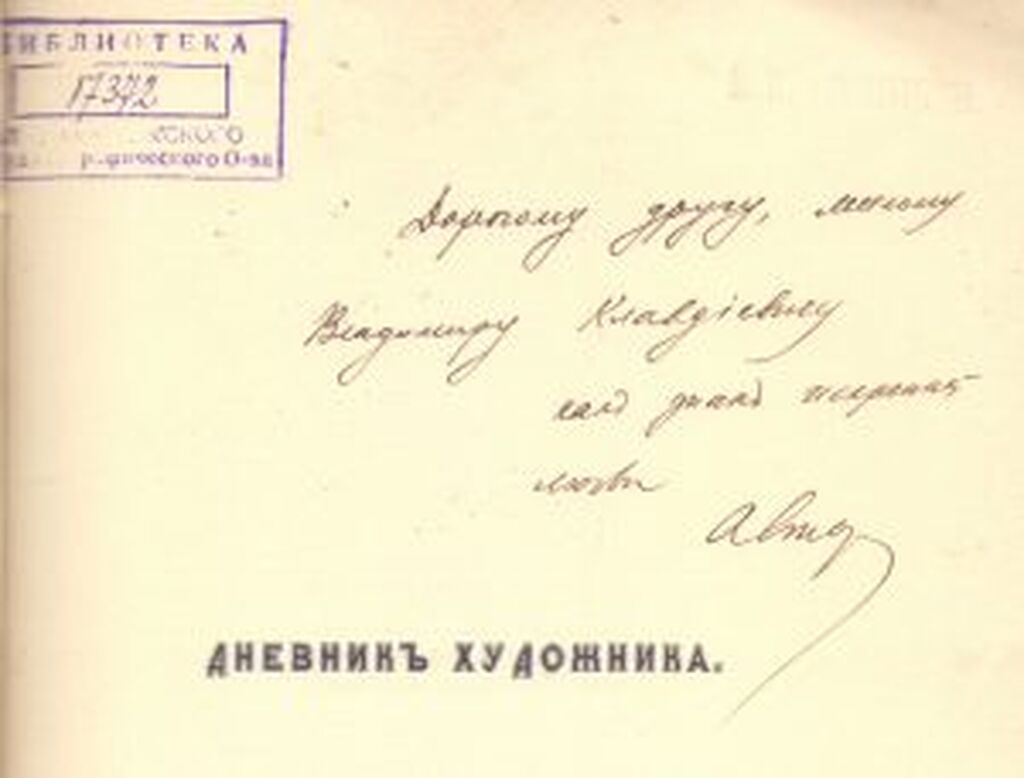 БИБЛИОТЕКА
17372
Дорогому другу, милому
Владимиру Клавдіевичу
какъ знакъ искренней
любви
Автор
ДНЕВНИКЪ ХУДОЖНИКА.